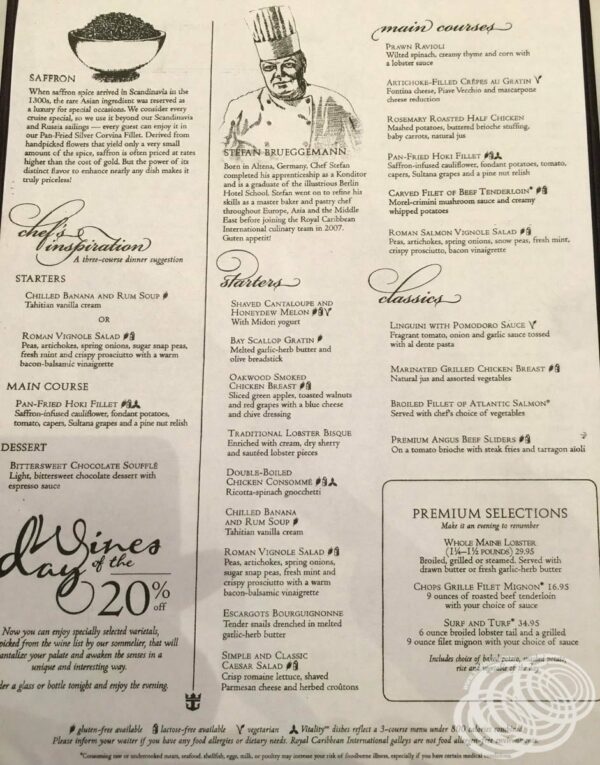 SAFFRON
When saffron spice arrived in Scandinavia in the
1300s, the rare Asian ingredient was reserved as
a luxury for special occasions. We consider every
cruise special, so we use it beyond our Scandinavia
and Russia sailings — every guest can enjoy it in
our Pan-Fried Silver Corvina Fillet. Derived from
handpicked flowers that yield only a very small
amount of the spice, saffron is often priced at rates
higher than the cost of gold. But the power of its
distinct flavor to enhance nearly any dish makes it
truly priceless!
chef's
inspiration
A three-course dinner suggestion
STARTERS
CHILLED BANANA AND RUM SOUP
Tahitian vanilla cream
OR
ROMAN VIGNOLE SALAD
Peas, artichokes, spring onions, sugar snap peas,
fresh mint and crispy prosciutto with a warm
bacon-balsamic vinaigrette
MAIN COURSE
PAN-FRIED HOKI FILLET
Saffron-infused cauliflower, fondant potatoes,
tomato, capers, Sultana grapes and a pine nut relish
DESSERT
BITTERSWEET CHOCOLATE SOUFFLÉ
Light, bittersweet chocolate dessert with
espresso sauce
Wines
of the
day
20% off
Now you can enjoy specially selected varietals,
picked from the wine list by our sommelier, that will
tantalize your palate and awaken the senses in a
unique and interesting way.
a glass or bottle tonight and enjoy the evening.
STEFAN BRUEGGEMANN
Born in Altena, Germany, Chef Stefan
completed his apprenticeship as a Konditor
and is a graduate of the illustrious Berlin
Hotel School. Stefan went on to refine his
skills as a master baker and pastry chef
throughout Europe, Asia and the Middle
East before joining the Royal Caribbean
International culinary team in 2007.
Guten appetit!
starters
SHAVED CANTALOUPE AND
HONEYDEW MELON
With Midori yogurt
BAY SCALLOP GRATIN
Melted garlic-herb butter and
olive breadstick
OAKWOOD SMOKED
CHICKEN BREAST
Sliced green apples, toasted walnuts
and red grapes with a blue cheese
and chive dressing
TRADITIONAL LOBSTER BISQUE
Enriched with cream, dry sherry
and sautéed lobster pieces
DOUBLE-BOILED
CHICKEN CONSOMMÉ
Ricotta-spinach gnocchetti
CHILLED BANANA
AND RUM SOUP
Tahitian vanilla cream
ROMAN VIGNOLE SALAD
Peas, artichokes, spring onions,
sugar snap peas, fresh mint and
crispy prosciutto with a warm
bacon-balsamic vinaigrette
ESCARGOTS BOURGUIGNONNE
Tender snails drenched in melted
garlic-herb butter
SIMPLE AND CLASSIC
CAESAR SALAD
Crisp romaine lettuce, shaved
Parmesan cheese and herbed croûtons
main courses
PRAWN RAVIOLI
Wilted spinach, creamy thyme and corn with
a lobster sauce
ARTICHOKE-FILLED CRÊPES AU GRATIN
Fontina cheese, Piave Vecchio and mascarpone
cheese reduction
ROSEMARY ROASTED HALF CHICKEN
Mashed potatoes, buttered brioche stuffing,
baby carrots, natural jus
PAN-FRIED HOKI FILLET
Saffron-infused cauliflower, fondant potatoes, tomato,
capers, Sultana grapes and a pine nut relish
CARVED FILET OF BEEF TENDERLOIN*
Morel-crimini mushroom sauce and creamy
whipped potatoes
ROMAN SALMON VIGNOLE SALAD
Peas, artichokes, spring onions, snow peas, fresh mint,
crispy prosciutto, bacon vinaigrette
classics
LINGUINI WITH POMODORO SAUCE
Fragrant tomato, onion and garlic sauce tossed
with al dente pasta
MARINATED GRILLED CHICKEN BREAST
Natural jus and assorted vegetables
BROILED FILLET OF ATLANTIC SALMON*
Served with chef's choice of vegetables
PREMIUM ANGUS BEEF SLIDERS
On a tomato brioche with steak fries and tarragon aioli
PREMIUM SELECTIONS
Make it an evening to remember
WHOLE MAINE LOBSTER
(1¼–1½ POUNDS) 29.95
Broiled, grilled or steamed. Served with
drawn butter or fresh garlic-herb butter
CHOPS GRILLE FILET MIGNON* 16.95
9 ounces of roasted beef tenderloin
with your choice of sauce
SURF AND TURF* 34.95
6 ounce broiled lobster tail and a grilled
9 ounce filet mignon with your choice of sauce
Includes choice of baked potato, mashed potato,
rice and vegetable of the day
gluten-free available lactose-free available vegetarian Vitality℠ dishes reflect a 3-course menu under 800 calories combined
Please inform your waiter if you have any food allergies or dietary needs. Royal Caribbean International galleys are not food allergen-free
*Consuming raw or undercooked meats, seafood, shellfish, eggs, milk, or poultry may increase your risk of foodborne illness, especially if you have certain medical